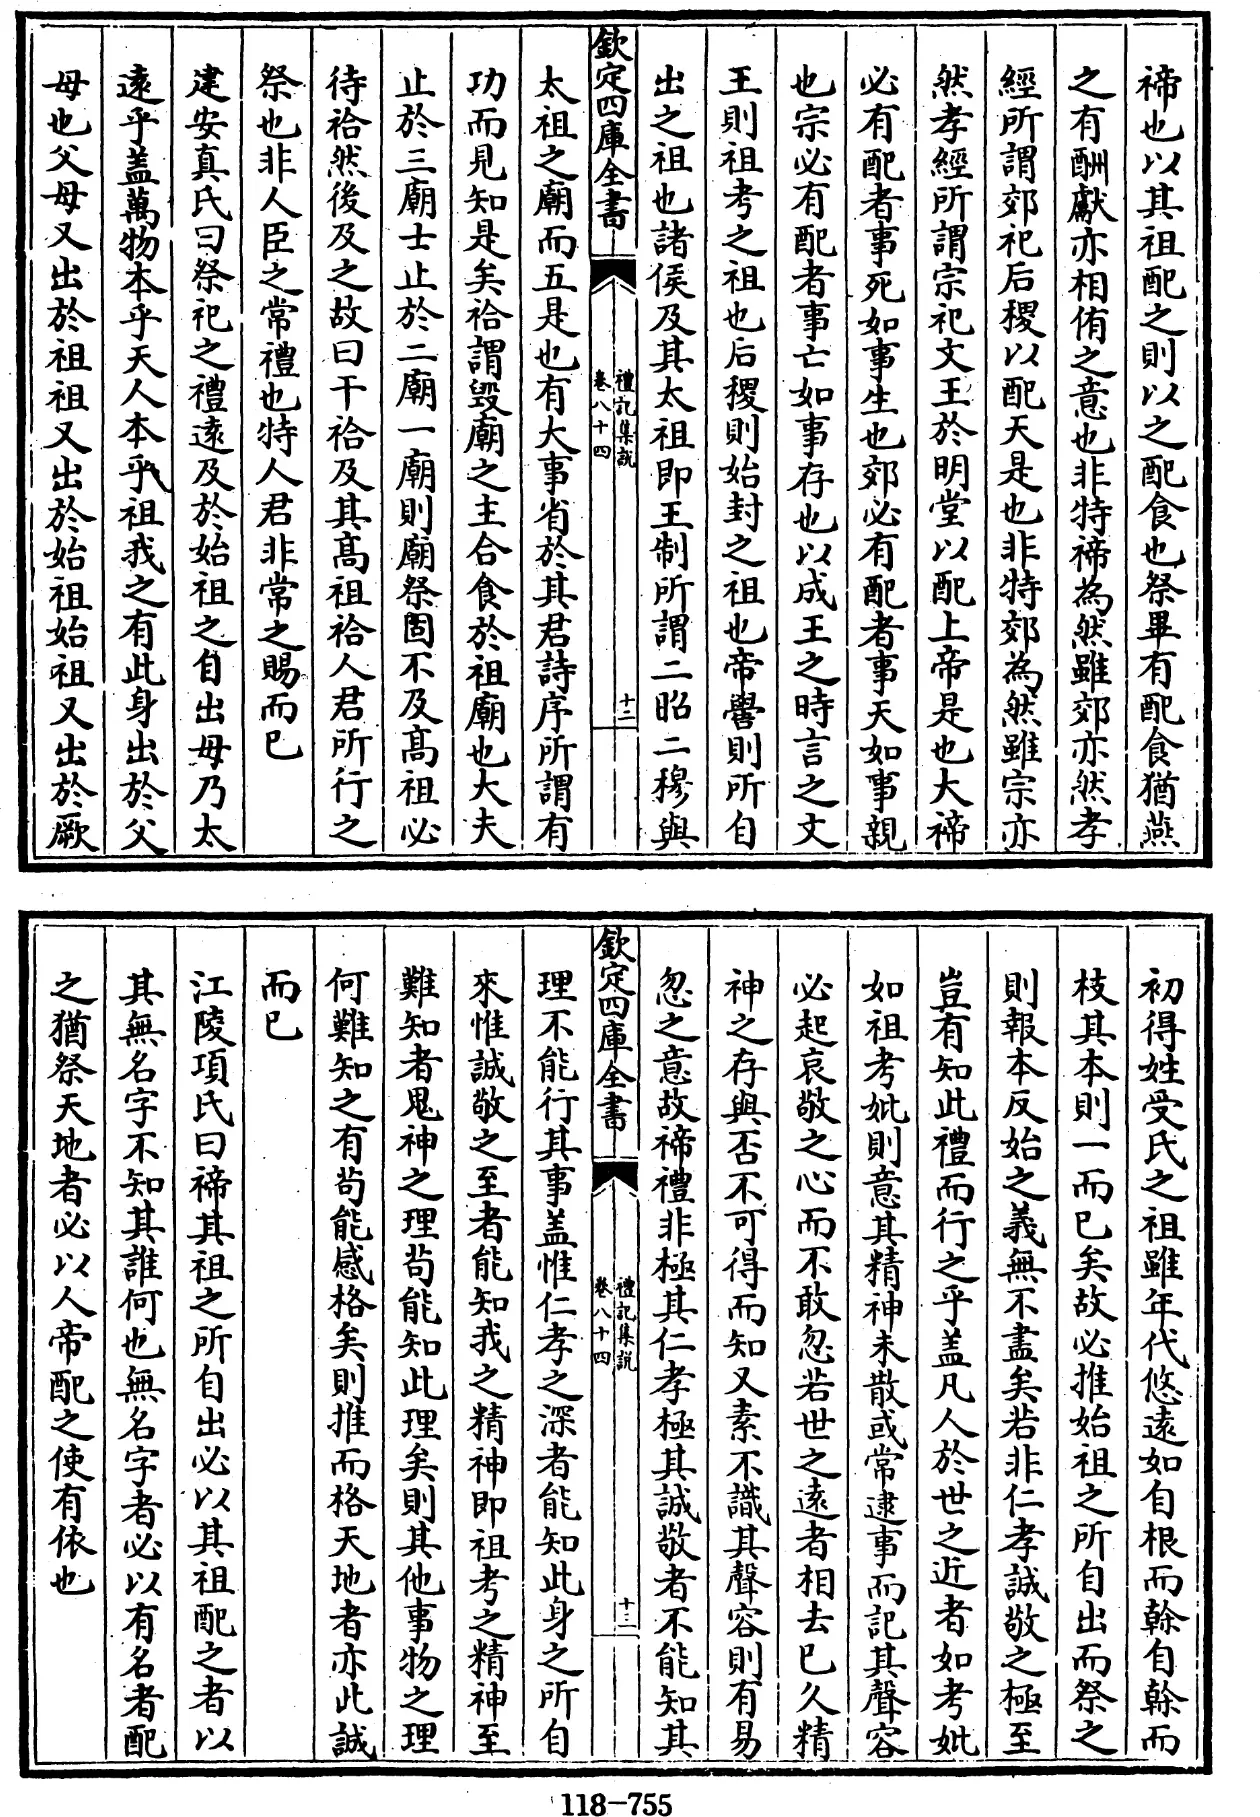 禘也以其祖配之則以之配食也祭畢有配食猶燕
之有酬獻亦相侑之意也非特禘為然雖郊亦然孝
經所謂郊祀后稷以配天是也非特郊為然雖宗亦
然孝經所謂宗祀文王於明堂以配上帝是也大禘
必有配者事死如事生也郊必有配者事天如事親
也宗必有配者事亡如事存也以成王之時言之文
王則祖考之祖也后稷則始封之祖也帝嚳則所自
出之祖也諸侯及其太祖即王制所謂二昭二穆與
欽定四庫全書
禮記集說
卷八十四
十二
太祖之廟而五是也有大事省於其君詩序所謂有
功而見知是矣祫謂毀廟之主合食於祖廟也大夫
止於三廟士止於二廟一廟則廟祭固不及髙祖必
待祫然後及之故曰干祫及其髙祖祫人君所行之
祭也非人臣之常禮也特人君非常之賜而已
建安真氏曰祭祀之禮遠及於始祖之自出毋乃太
遠乎盖萬物本乎天人本乎祖我之有此身出於父
母也父母又出於祖祖又出於始祖始祖又出於厥
初得姓受氏之祖雖年代悠遠如自根而榦自榦而
枝其本則一而已矣故必推始祖之所自出而祭之
則報本反始之義無不盡矣若非仁孝誠敬之極至
豈有知此禮而行之乎盖凡人於世之近者如考妣
如祖考妣則意其精神未散或常逮事而記其聲容
必起哀敬之心而不敢忽若世之遠者相去已久精
神之存與否不可得而知又素不識其聲容則有易
忽之意故禘禮非極其仁孝極其誠敬者不能知其
欽定四庫全書
禮記集說
卷八十四
十三
理不能行其事盖惟仁孝之深者能知此身之所自
來惟誠敬之至者能知我之精神即祖考之精神至
難知者鬼神之理茍能知此理矣則其他事物之理
何難知之有茍能感格矣則推而格天地者亦此誠
而已
江陵項氏曰禘其祖之所自出必以其祖配之者以
其無名字不知其誰何也無名字者必以有名者配
之猶祭天地者必以人帝配之使有依也
118-755